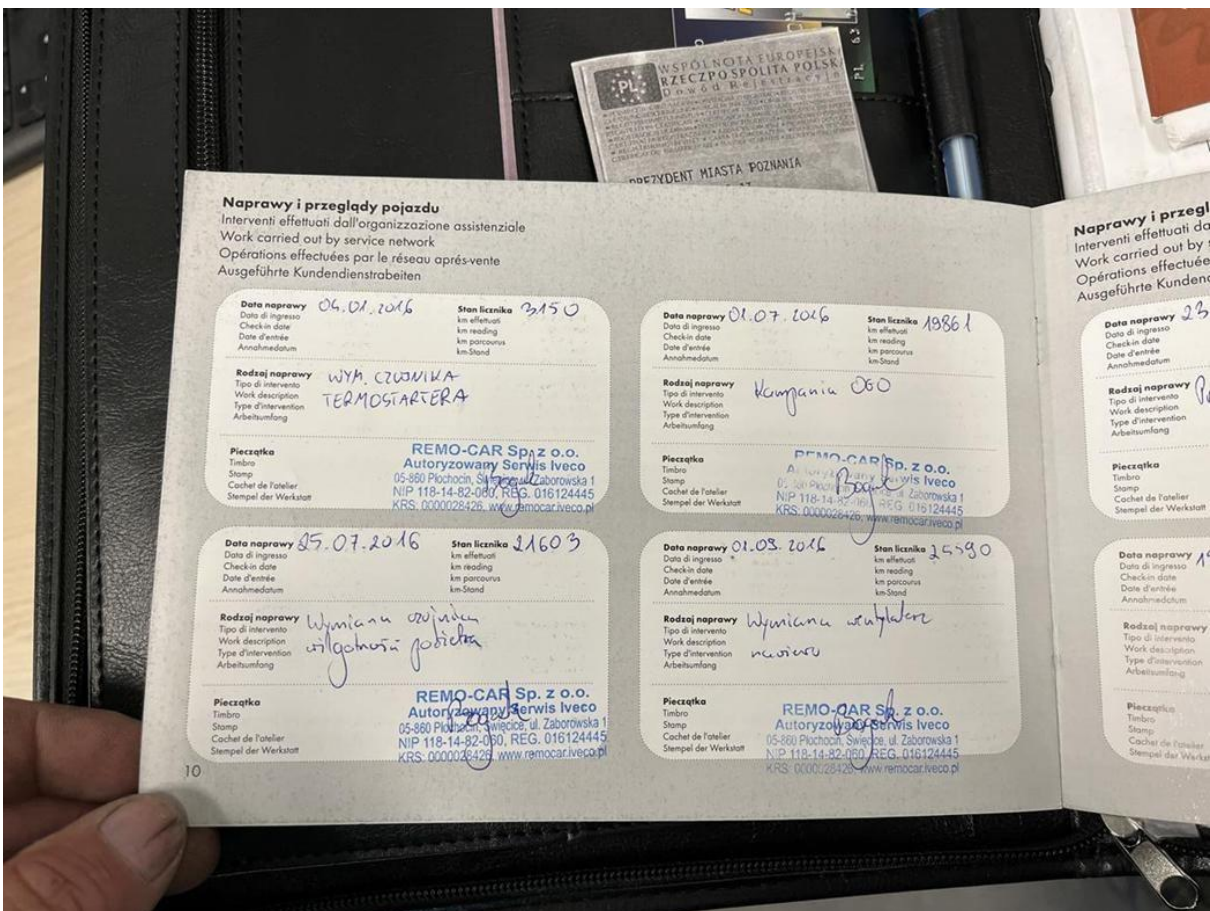 WSPÓLNOTA EUROPEJSK
RZECZPOSPOLITA POLSK
PL
Dowód Rejestracyjn
PREZYDENT MIASTA POZNANIA
PL 63
Naprawy i przeglądy pojazdu
Interventi effettuati dall'organizzazione assistenziale
Work carried out by service network
Opérations effectuées par le réseau aprés-vente
Ausgeführte Kundendienstrabeiten
Data naprawy 04.01.2016 Stan licznika 3150
Data di ingresso km effettuati
Check-in date km reading
Date d'entrée km parcourus
Annahmedatum km-Stand
Rodzaj naprawy WYM. CZUJNIKA
Tipo di intervento
Work description TERMOSTARTERA
Type d'intervention
Arbeitsumfang
Pieczątka
Timbro
Stamp
Cachet de l'atelier
Stempel der Werkstatt
REMO-CAR Sp. z o.o.
Autoryzowany Serwis Iveco
05-860 Płochocin, Święcice, ul. Zaborowska 1
NIP 118-14-82-060, REG. 016124445
KRS: 0000028426, www.remocar.iveco.pl
Data naprawy 01.07.2016 Stan licznika 19861
Data di ingresso km effettuati
Check-in date km reading
Date d'entrée km parcourus
Annahmedatum km-Stand
Rodzaj naprawy
Tipo di intervento Kampania OGO
Work description
Type d'intervention
Arbeitsumfang
Pieczątka
Timbro
Stamp
Cachet de l'atelier
Stempel der Werkstatt
REMO-CAR Sp. z o.o.
Autoryzowany Serwis Iveco
ul. Zaborowska 1
NIP 118-14-82-060, REG. 016124445
KRS: 0000028426, www.remocar.iveco.pl
Data naprawy 25.07.2016 Stan licznika 21603
Data di ingresso km effettuati
Check-in date km reading
Date d'entrée km parcourus
Annahmedatum km-Stand
Rodzaj naprawy Wymiana czujnika
Tipo di intervento
Work description wilgotności
Type d'intervention
Arbeitsumfang
Pieczątka
Timbro
Stamp
Cachet de l'atelier
Stempel der Werkstatt
REMO-CAR Sp. z o.o.
Autoryzowany Serwis Iveco
05-860 Płochocin, Święcice, ul. Zaborowska 1
NIP 118-14-82-060, REG. 016124445
KRS: 0000028426, www.remocar.iveco.pl
Data naprawy 01.09.2016 Stan licznika
Data di ingresso km effettuati
Check-in date km reading
Date d'entrée km parcourus
Annahmedatum km-Stand
Rodzaj naprawy Wymiana
Tipo di intervento
Work description nawiewu
Type d'intervention
Arbeitsumfang
Pieczątka
Timbro
Stamp
Cachet de l'atelier
Stempel der Werkstatt
REMO-CAR Sp. z o.o.
Autoryzowany Serwis Iveco
05-860 Płochocin, Święcice, ul. Zaborowska 1
NIP 118-14-82-060, REG. 016124445
KRS: 0000028426, www.remocar.iveco.pl
10
Naprawy i przegl
Interventi effettuati da
Work carried out by
Opérations effectuée
Ausgeführte Kunden
Data naprawy 23
Data di ingresso
Check-in date
Date d'entrée
Annahmedatum
Rodzaj naprawy
Tipo di intervento
Work description
Type d'intervention
Arbeitsumfang
Pieczątka
Timbro
Stamp
Cachet de l'atelier
Stempel der Werkstatt
Data naprawy
Data di ingresso
Check-in date
Date d'entrée
Annahmedatum
Rodzaj naprawy
Tipo di intervento
Work description
Type d'intervention
Arbeitsumfang
Pieczątka
Timbro
Stamp
Cachet de l'atelier
Stempel der Werkst